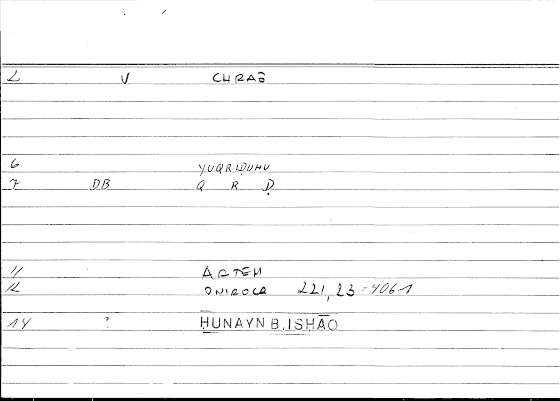 2 V
6 YUQRIḌUHU
7 DB Q R Ḍ
11 ARTEM
12 ONIROCR 221,23 = 4061
14 ? ḤUNAYN B. ISḤĀQ